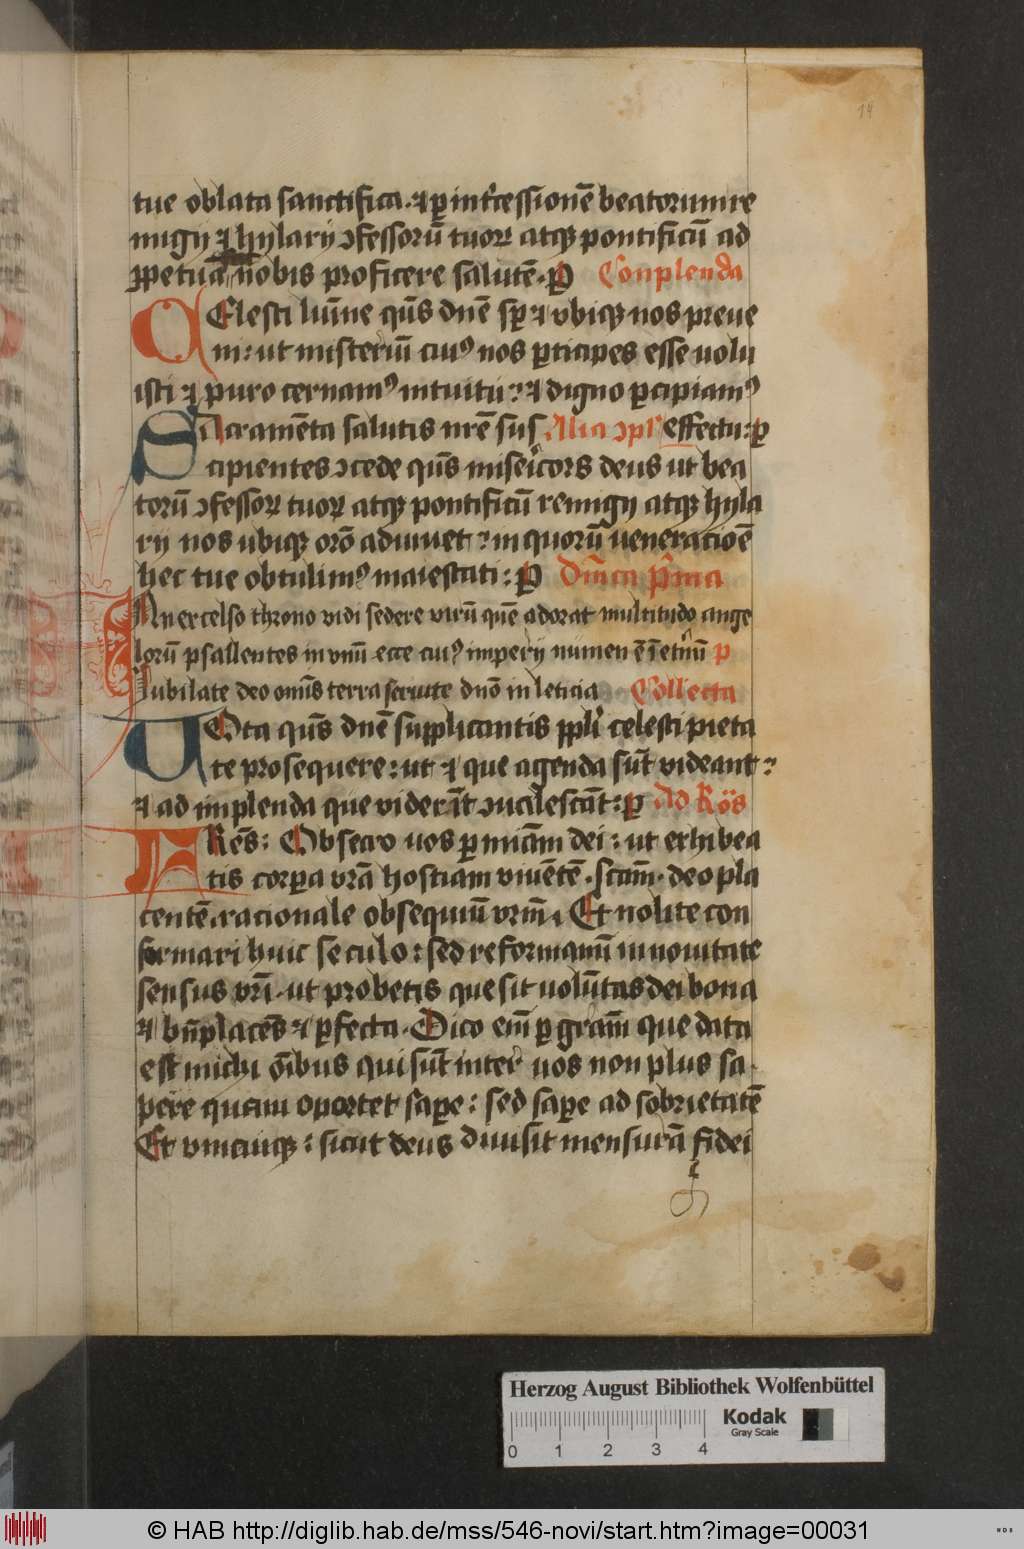 14
tue oblata sanctifica. ⁊ ꝑ int̉cessionē beatorum re
migy ⁊ hylarij ↄfessorū tuoꝝ atqꝫ pontificū ad
ꝓpetuā nobis proficere salutē. ꝑ Conplenda
CElesti lum̄ne qūs dn̄e sꝑ ⁊ vbiqꝫ nos preue
ni: ut misteriū cuiꝰ nos ꝑticipes esse uolu
isti ⁊ puro cernamꝰ intuitu: ⁊ digno ꝑcipiamꝰ
SAcramēta salutis nr̄e sus Alia ↄpl̉ effectu: ꝑ
cipientes ↄcede qūs misericors deus ut bea
torū ↄfessoꝝ tuoꝝ atqꝫ pontificū remigy atqꝫ hyla
ry nos ubiqꝫ orō adiuuet: in quorū ueneracioē
hec tue obtulimꝰ maiestati: ꝑ Dn̄ica pͥma
IN excelso throno vidi sedere virū quē adorat multitudo ange
lorū psallentes in vnū ecce cuiꝰ imperij numen ē ī et̉nū p
Iubilate deo omīs terra seruite dnō in leticia Collecta
UOta qūs dn̄e supplicantis ppl̉i celesti pieta
te prosequere: ut ⁊ que agenda sūt videant:
⁊ ad implenda que viderīt ↄualescāt: ꝑ Ad Rōs
FRēs: Obsecro uos ꝑ mīam dei: ut exhibea
tis corꝑa vrā hostiam viuētē. sc̄am. deo pla
centē. racionale obsequiū vrm̄. Et nolite con
formari huic seculo: sed reformamī in nouitate
sensus vrī. ut probetis que sit uolūtas dei bona
⁊ bn̄placēs ⁊ ꝑfecta. Dico em̄ ꝑ grām que data
est michi ōibus qui sūt inter uos non plus sa
pere quam oportet saꝑe: sed saꝑe ad sobrietatē
Et vnicuiqꝫ: sicut deus diuisit mensurā fidei
Herzog August Bibliothek Wolfenbüttel
0 1 2 3 4
Kodak
Gray Scale
© HAB http://diglib.hab.de/mss/546-novi/start.htm?image=00031